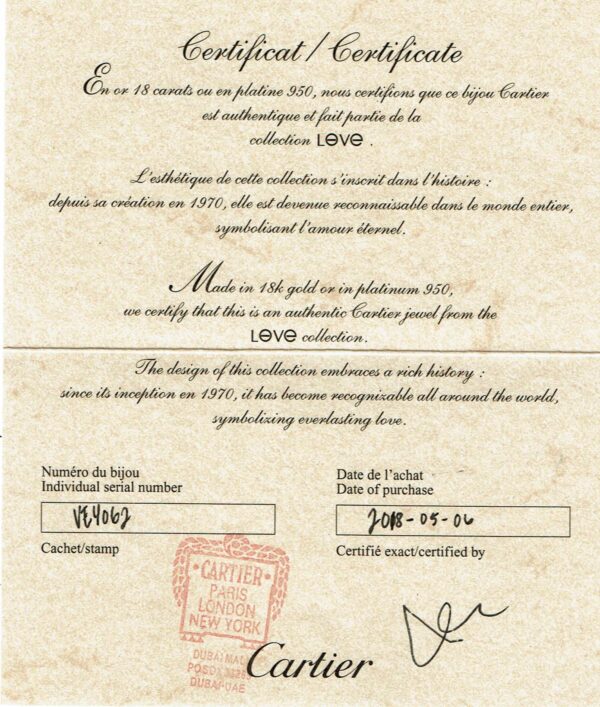 Certificat / Certificate
En or 18 carats ou en platine 950, nous certifions que ce bijou Cartier
est authentique et fait partie de la
collection LOVE .
L'esthétique de cette collection s'inscrit dans l'histoire :
depuis sa création en 1970, elle est devenue reconnaissable dans le monde entier,
symbolisant l'amour éternel.
Made in 18k gold or in platinum 950,
we certify that this is an authentic Cartier jewel from the
LOVE collection.
The design of this collection embraces a rich history :
since its inception in 1970, it has become recognizable all around the world,
symbolizing everlasting love.
Numéro du bijou
Individual serial number
VE4062
Date de l'achat
Date of purchase
2018-05-06
Cachet/stamp
Certifié exact/certified by
CARTIER
PARIS
LONDON
NEW YORK
DUBAI MALL
DUBAI-UAE
Cartier